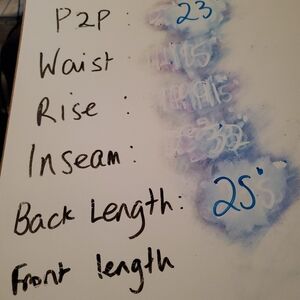 P2P : 23
Waist :
Rise :
Inseam :
Back Length : 25"
Front length